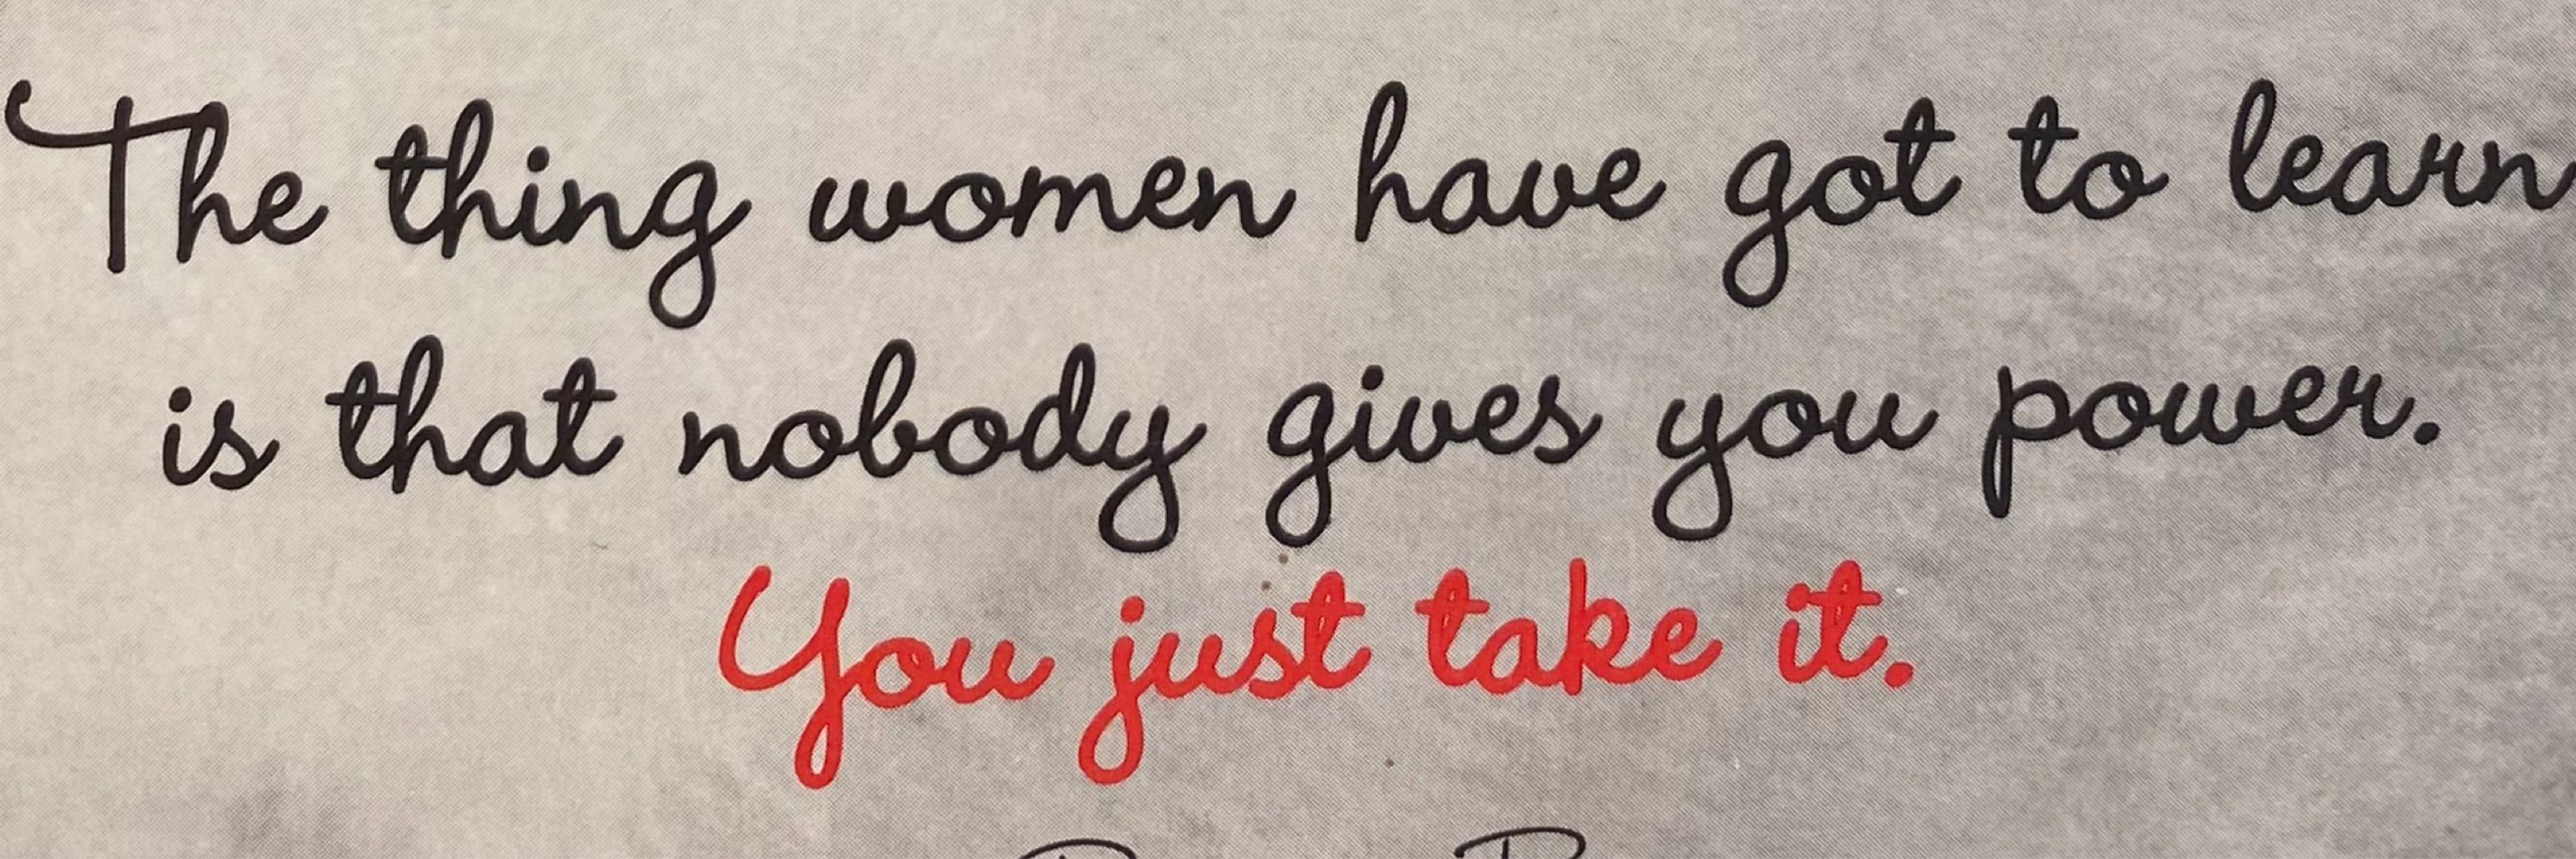 The thing women have got to learn
is that nobody gives you power.
You just take it.